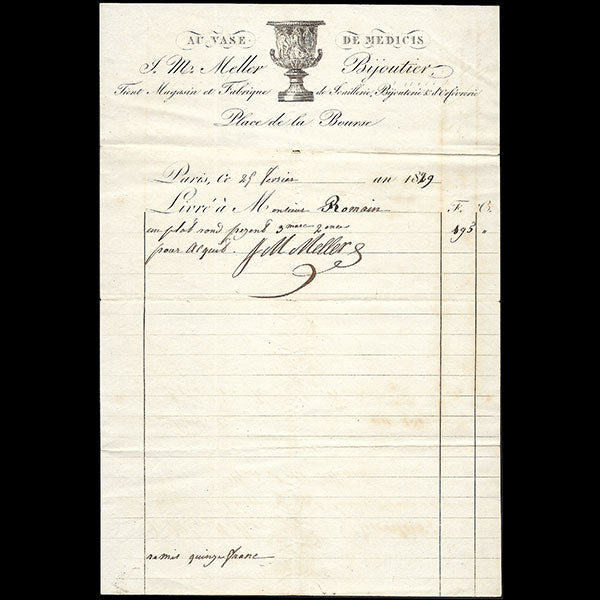 AU VASE DE MEDICIS
J. M. Meller Bijoutier,
Tient Magasin et Fabrique de Joaillerie, Bijouterie & d'Orfèvrerie
Place de la Bourse
Paris, Ce 25 fevrier an 1829
Livré à Monsieur Romain F. C.
un plat rond pezent 3 marc 2 once 195 "
pour Acquit. J M Meller
remis quinze franc